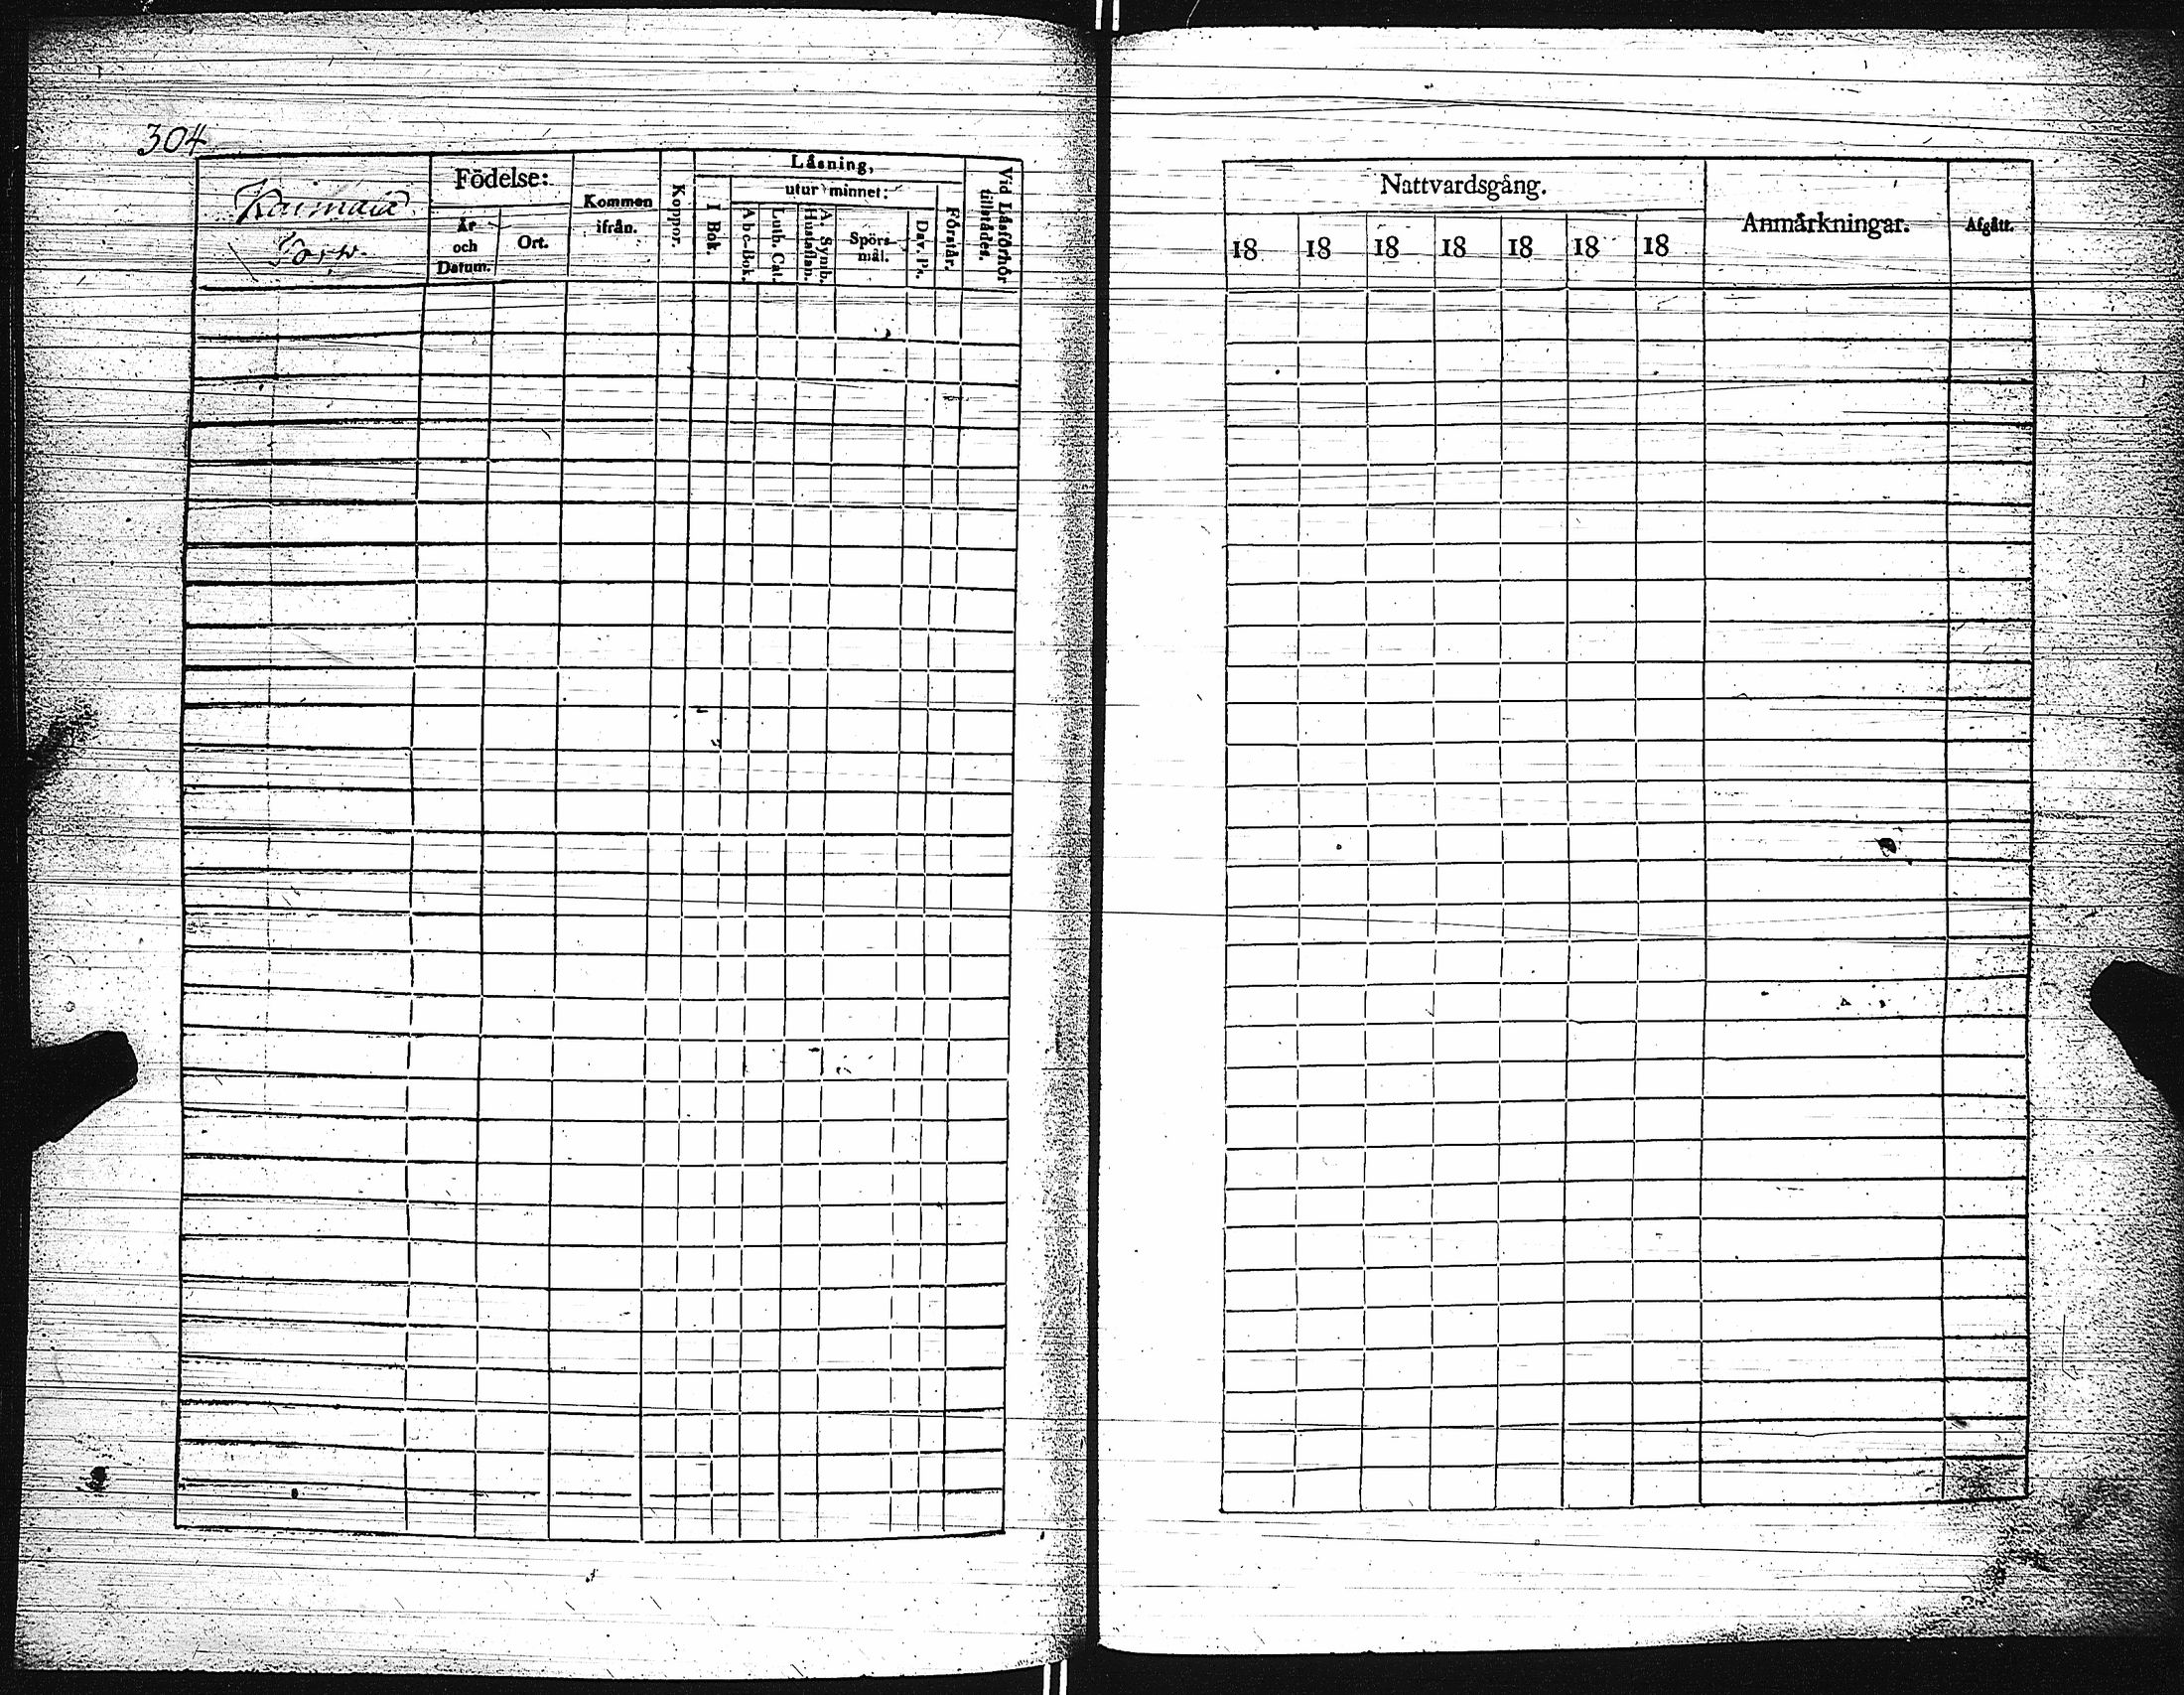 304
Födelse:
År
och
Datum.
Ort.
Kommen
ifrån.
Koppor.
Läsning,
utur minnet:
I Bok.
Abc-Bok.
Luth. Cat.
A. Symb.
Hustaflan.
Spörs-
mål.
Dav. Ps.
Förstår.
Vid Läsförhör
tillstådes.
Nattvardsgång.
18 18 18 18 18 18 18
Anmärkningar.
Afgått.